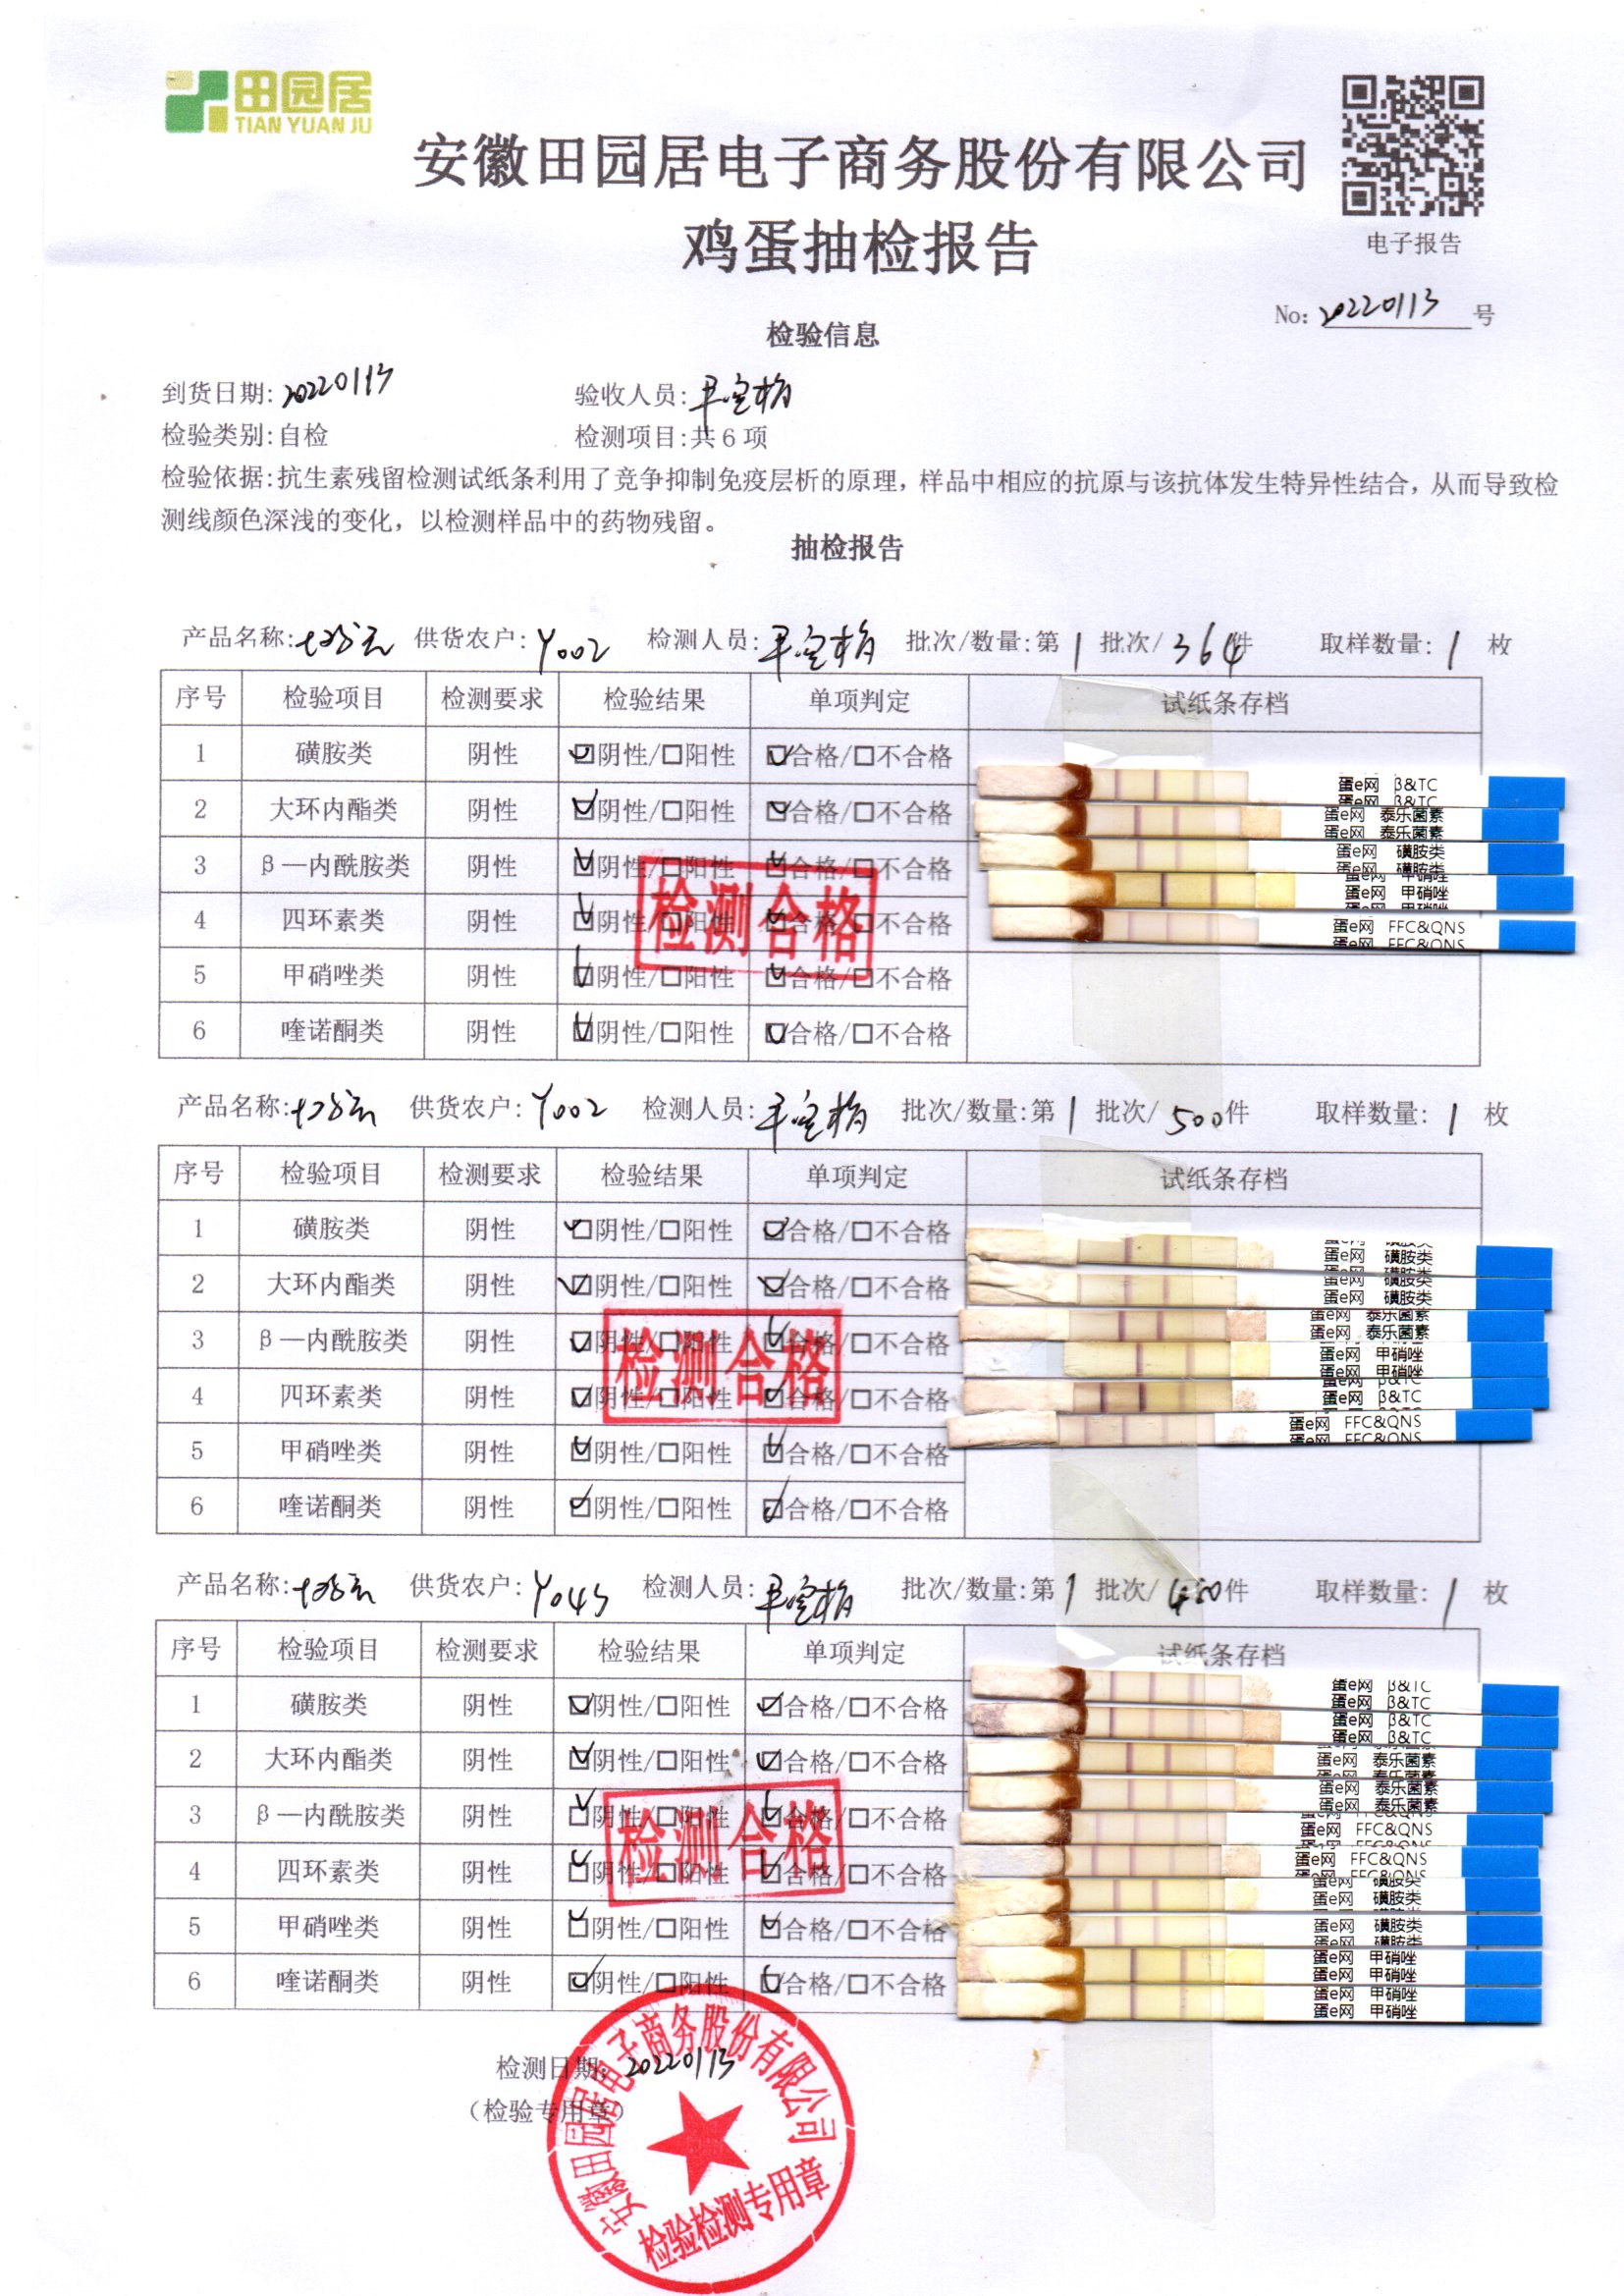 田园居
TIAN YUAN JU
安徽田园居电子商务股份有限公司
鸡蛋抽检报告
电子报告
No: 20220113 号
检验信息
到货日期: 20220113 验收人员:
检验类别: 自检 检测项目: 共 6 项
检验依据: 抗生素残留检测试纸条利用了竞争抑制免疫层析的原理, 样品中相应的抗原与该抗体发生特异性结合, 从而导致检
测线颜色深浅的变化, 以检测样品中的药物残留。
抽检报告
产品名称: 供货农户: Y002 检测人员: 批次/数量: 第 1 批次/ 364 件 取样数量: 1 枚
序号 检验项目 检测要求 检验结果 单项判定 试纸条存档
1 磺胺类 阴性 ☑阴性/□阳性 ☑合格/□不合格
2 大环内酯类 阴性 ☑阴性/□阳性 ☑合格/□不合格
3 β—内酰胺类 阴性 ☑阴性/□阳性 ☑合格/□不合格
4 四环素类 阴性 ☑阴性/□阳性 ☑合格/□不合格
5 甲硝唑类 阴性 ☑阴性/□阳性 ☑合格/□不合格
6 喹诺酮类 阴性 ☑阴性/□阳性 ☑合格/□不合格
检测合格
蛋e网 β&TC
蛋e网 β&TC
蛋e网 泰乐菌素
蛋e网 泰乐菌素
蛋e网 磺胺类
蛋e网 磺胺类
蛋e网 甲硝唑
蛋e网 甲硝唑
蛋e网 甲硝唑
蛋e网 FFC&QNS
蛋e网 FFC&QNS
产品名称: 供货农户: Y002 检测人员: 批次/数量: 第 1 批次/ 500 件 取样数量: 1 枚
序号 检验项目 检测要求 检验结果 单项判定 试纸条存档
1 磺胺类 阴性 ☑阴性/□阳性 ☑合格/□不合格
2 大环内酯类 阴性 ☑阴性/□阳性 ☑合格/□不合格
3 β—内酰胺类 阴性 ☑阴性/□阳性 ☑合格/□不合格
4 四环素类 阴性 ☑阴性/□阳性 ☑合格/□不合格
5 甲硝唑类 阴性 ☑阴性/□阳性 ☑合格/□不合格
6 喹诺酮类 阴性 ☑阴性/□阳性 ☑合格/□不合格
检测合格
蛋e网 磺胺类
蛋e网 磺胺类
蛋e网 磺胺类
蛋e网 磺胺类
蛋e网 泰乐菌素
蛋e网 泰乐菌素
蛋e网 甲硝唑
蛋e网 甲硝唑
蛋e网 β&TC
蛋e网 β&TC
蛋e网 FFC&QNS
蛋e网 FFC&QNS
产品名称: 供货农户: Y043 检测人员: 批次/数量: 第 1 批次/ 450 件 取样数量: 1 枚
序号 检验项目 检测要求 检验结果 单项判定 试纸条存档
1 磺胺类 阴性 ☑阴性/□阳性 ☑合格/□不合格
2 大环内酯类 阴性 ☑阴性/□阳性 ☑合格/□不合格
3 β—内酰胺类 阴性 ☑阴性/□阳性 ☑合格/□不合格
4 四环素类 阴性 ☑阴性/□阳性 ☑合格/□不合格
5 甲硝唑类 阴性 ☑阴性/□阳性 ☑合格/□不合格
6 喹诺酮类 阴性 ☑阴性/□阳性 ☑合格/□不合格
检测合格
蛋e网 β&TC
蛋e网 β&TC
蛋e网 β&TC
蛋e网 β&TC
蛋e网 泰乐菌素
蛋e网 泰乐菌素
蛋e网 泰乐菌素
蛋e网 泰乐菌素
蛋e网 FFC&QNS
蛋e网 FFC&QNS
蛋e网 FFC&QNS
蛋e网 磺胺类
蛋e网 磺胺类
蛋e网 磺胺类
蛋e网 磺胺类
蛋e网 甲硝唑
蛋e网 甲硝唑
蛋e网 甲硝唑
蛋e网 甲硝唑
检测日期: 20220113
(检验专用章)
安徽田园居电子商务股份有限公司
检验检测专用章